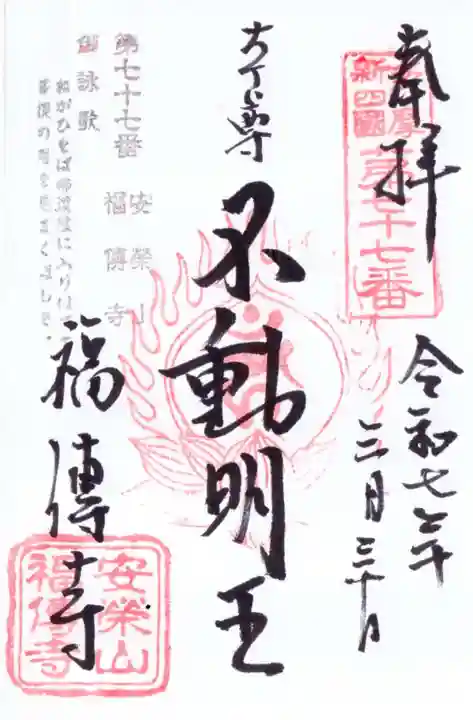 奉拝
新四國
第七十七番
令和七年
三月三十日
本尊
不動明王
第七十七番 安榮山
御詠歌 福傳寺
福傳寺
安榮山
福傳寺